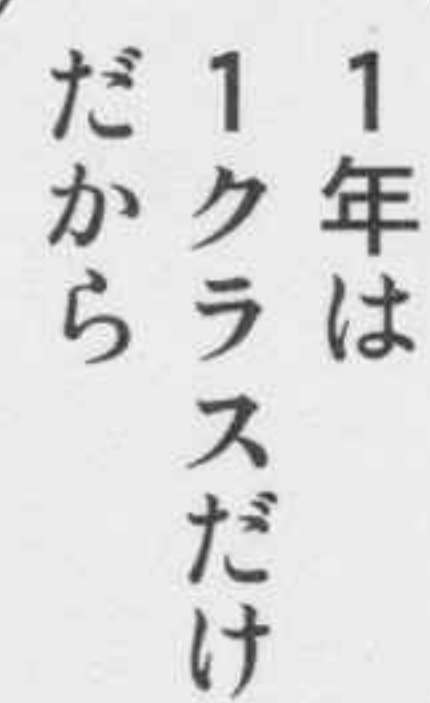 1年は
1クラスだけ
だから